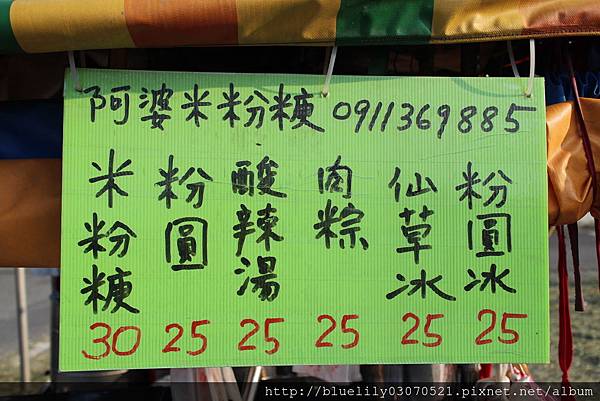 阿婆米粉糖 0911369885
米粉糖 30
粉圓 25
酸辣湯 25
肉粽 25
仙草冰 25
粉圓冰 25
http://bluelily03070521.pixnet.net/album